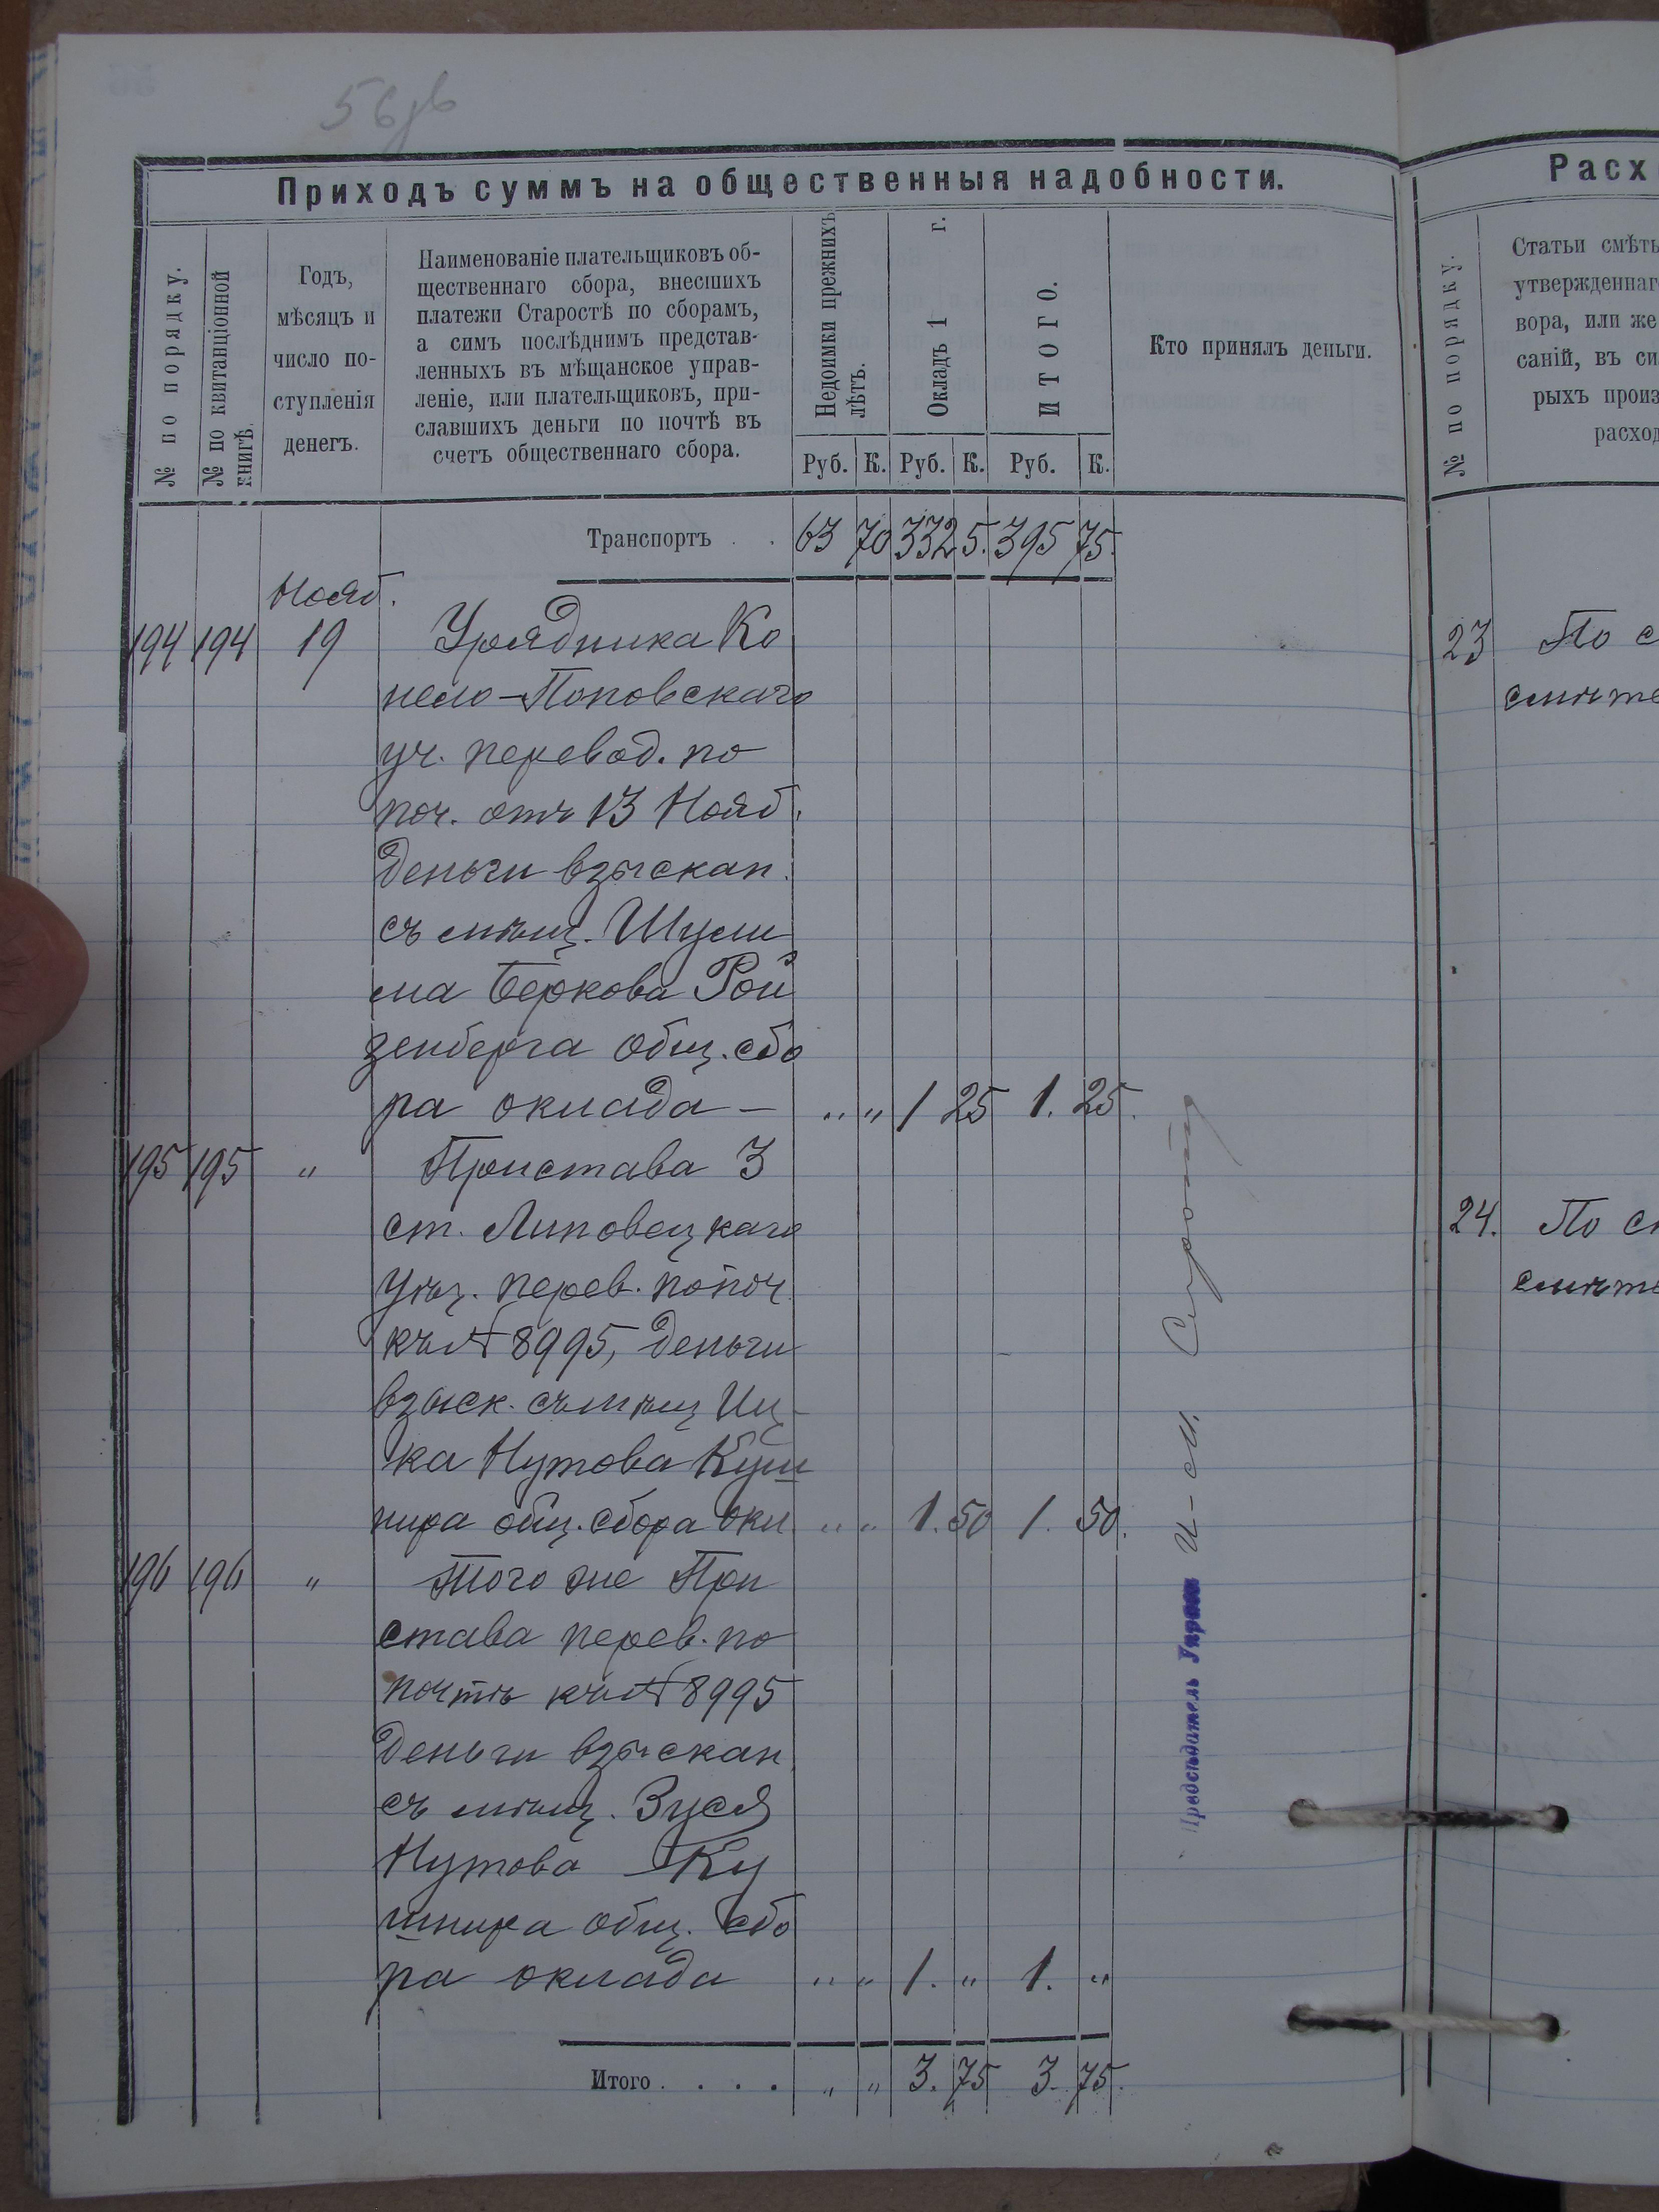 56 об
Приходъ суммъ на общественныя надобности.
№ по порядку.
№ по квитанціонной книгѣ.
Годъ,
мѣсяцъ и
число по-
ступленія
денегъ.
Наименованіе плательщиковъ об-
щественнаго сбора, внесшихъ
платежи Старостѣ по сборамъ,
а симъ послѣднимъ представ-
ленныхъ въ мѣщанское управ-
леніе, или плательщиковъ, при-
славшихъ деньги по почтѣ въ
счетъ общественнаго сбора.
Недоимки прежнихъ лѣтъ.
Окладъ 1 г.
ИТОГО.
Кто принялъ деньги.
Руб. К. Руб. К. Руб. К.
Транспортъ . . 63 70 332 5. 395 75.
Нояб.
194 194 19 Урядника Ко
нело-Поповскаго
уч. перевод. по
поч. отъ 13 Нояб.
деньги взыскан.
съ мѣщ. Шули
ма Беркова Рой
зенберга общ. сбо
ра оклада — " " 1 25 1. 25.
195 195 " Пристава 3
ст. Липовецкаго
уѣз. перев. по поч.
къ № 8995, деньги
взыск. съ мѣщ Иц-
ка Нутова Куш
нира общ. сбора окл. " " 1. 50 1. 50.
196 196 " Того же При
става перев. по
почтѣ къ № 8995
деньги взыскан.
съ мѣщ. Зуся
Нутова Ку
шнира общ. сбо
ра оклада " " 1. " 1. "
Итого . . . . " " 3. 75 3. 75.
Предсѣдатель Управы
Расх
№ по порядку.
Статьи смѣты
утвержденнаг
вора, или же
саній, въ си
рыхъ произ
расход
23 По с
смѣте
24. По см
смѣте